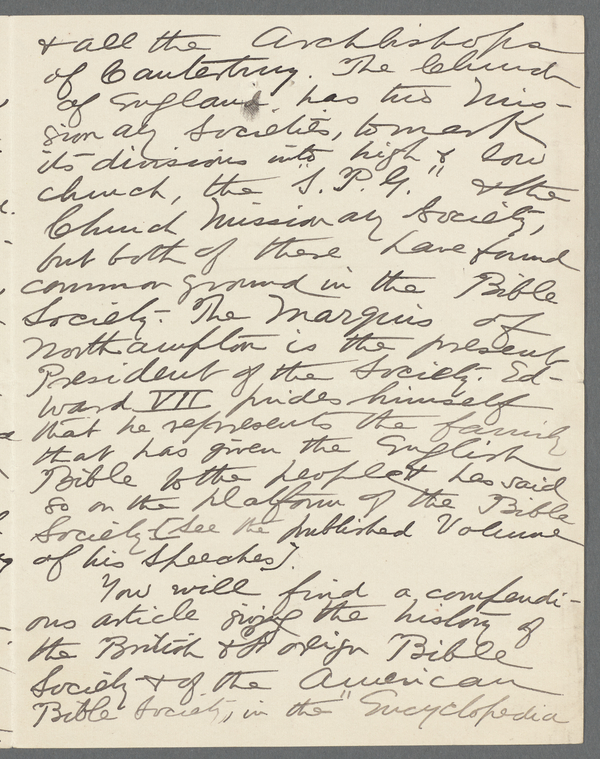 & all the Archbishops
of Canterbury. The Church
of England has two Mis-
sionary Societies, to mark
its divisions into high & low
church, the "S. P. G." & the
Church Missionary Society,
but both of these have found
common ground in the Bible
Society. The Marquis of
Northampton is the present
President of the Society. Ed-
ward VII prides himself
that he represents the family
that has given the English
Bible to the people & has said
so on the platform of the Bible
Society (see the published Volume
of his Speeches).
You will find a compendi-
ous article giving the history of
the British & Foreign Bible
Society & of the American
Bible Society, in the "Encyclopedia